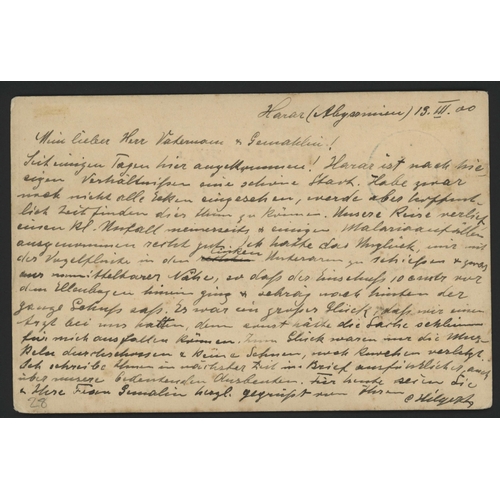 Harar (Abyssinien) 13. III. 00
Mein lieber Herr Vatermann & Gemahlin!
Seit einigen Tagen hier angekommen! Harar ist nach hie
sigen Verhältnissen eine schöne Stadt. Habe zwar
noch nicht alle Ecken eingesehen, werde aber hoffent-
lich Zeit finden dies thun zu können. Unsere Reise verlief
einen kl. Unfall meinerseits & einigen Malariaanfällen
ausgenommen recht gut. Ich hatte das Unglück, mir mit
der Vogelflinte in den linken Unterarm zu schießen & zwar
aus unmittelbarer Nähe, so daß der Einschuß 10 cmtr vor
dem Ellenbogen hinein ging & schräg nach hinten der
ganze Schuß saß. Es war ein großes Glück, daß wir einen
Arzt bei uns hatten, denn sonst hätte die Sache schlimm
für mich ausfallen können. Zum Glück waren nur die Mus-
keln durchschossen & keine Sehnen, noch Knochen verletzt.
Ich schreibe Ihnen in nächster Zeit in Brief ausführlich, auch
über unsere bedeutenden Ausbeuten. Für heute seien Sie
& Ihre Frau Gemalin herzl. gegrüßt von Ihrem
C Hilgert
28